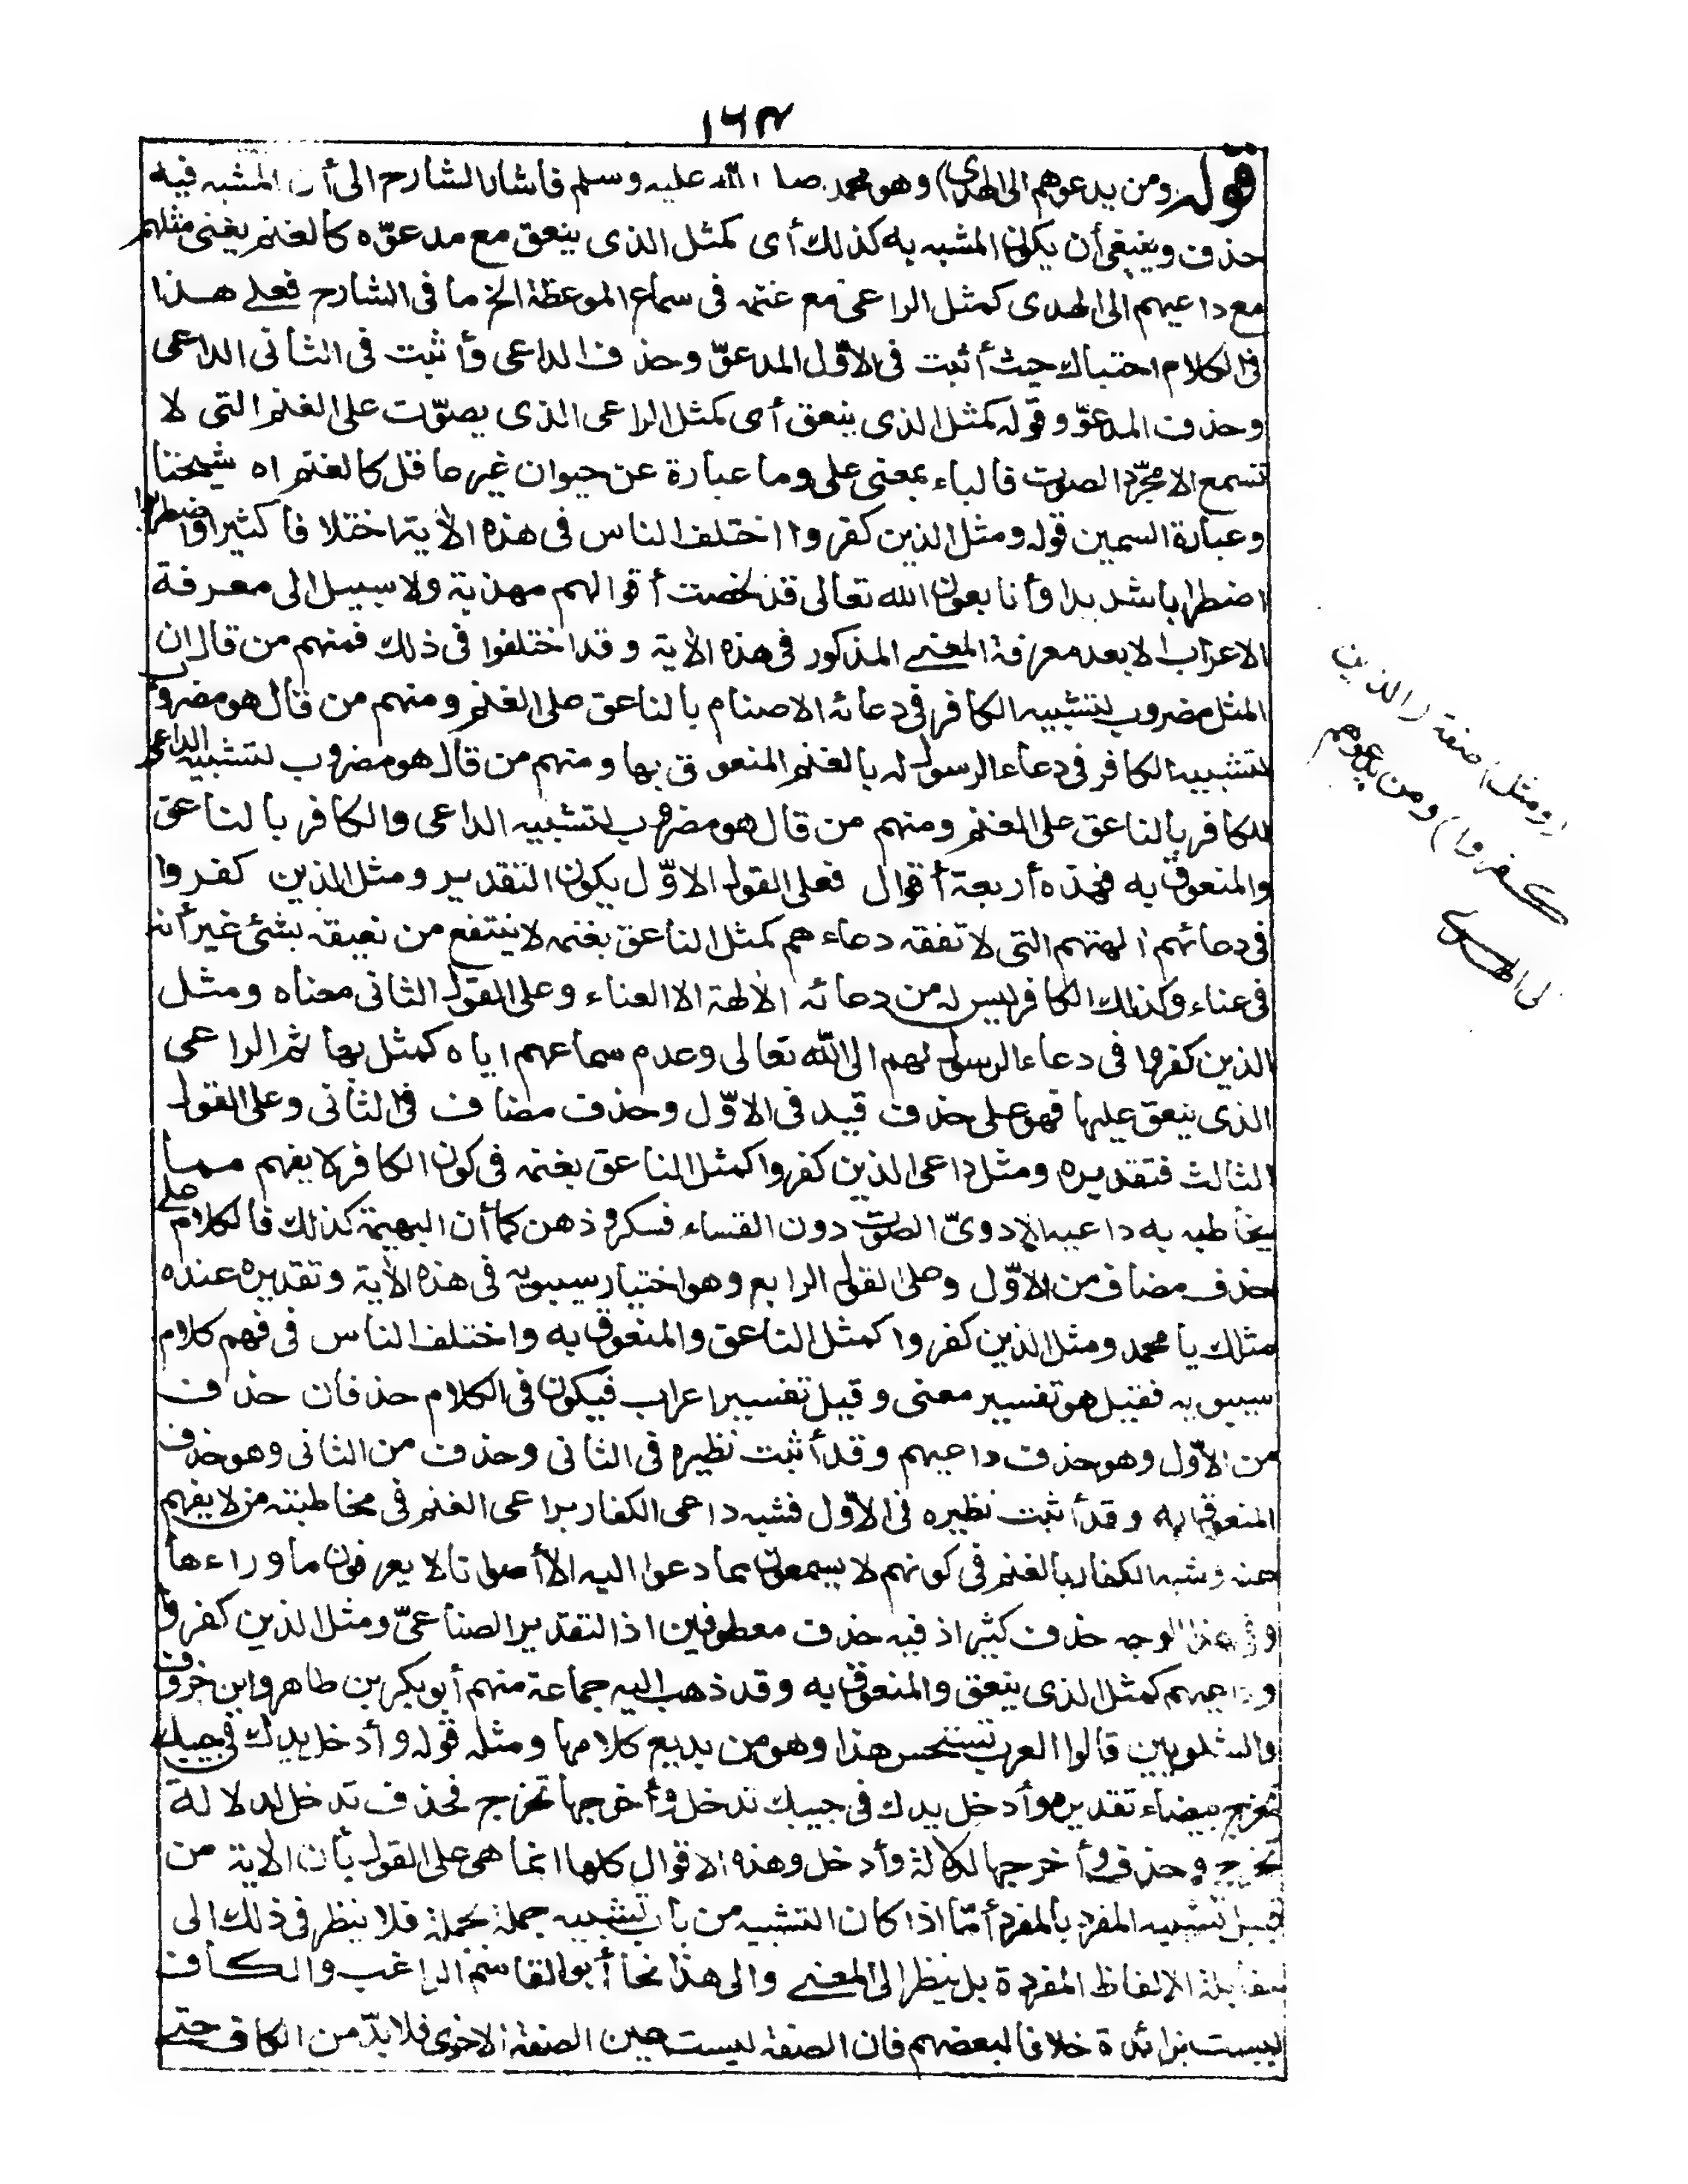 ١٦٣
قوله ومن يدعوهم الى الهدى) وهو محمد صلى الله عليه وسلم فأشار الشارح الى أن المشبه فيه
حذف وينبغى أن يكون المشبه به كذلك أى كمثل الذى ينعق مع مدعوّه كالغنم يعنى مثلهم
مع داعيهم الى الهدى كمثل الراعى مع غنمه فى سماع الموعظة الخ ما فى الشارح فعلى هذا
فى الكلام احتباك حيث أثبت فى الاوّل المدعوّ وحذف الداعى وأثبت فى الثانى الداعى
وحذف المدعوّ وقوله كمثل الذى ينعق أى كمثل الراعى الذى يصوّت على الغنم التى لا
تسمع الا مجرّد الصوت فالباء بمعنى على وما عبارة عن حيوان غير عاقل كالغنم اه شيخنا
وعبارة السمين قوله ومثل الذين كفروا اختلف الناس فى هذه الآية اختلافا كثيرا واضطربوا
اضطرابا شديدا وأنا بعون الله تعالى قد لخصت أقوالهم مهذبة ولا سبيل الى معرفة
الاعراب الا بعد معرفة المعنى المذكور فى هذه الآية وقد اختلفوا فى ذلك فمنهم من قال ان
المثل مضروب لتشبيه الكافر فى دعائه الاصنام بالناعق على الغنم ومنهم من قال هو مضروب
لتشبيه الكافر فى دعاء الرسول له بالغنم المنعوق بها ومنهم من قال هو مضروب لتشبيه الداعى
للكافر بالناعق على الغنم ومنهم من قال هو مضروب لتشبيه الداعى والكافر بالناعق
والمنعوق به فهذه أربعة أقوال فعلى القول الاوّل يكون التقدير ومثل الذين كفروا
فى دعائهم آلهتهم التى لا تفقه دعاءهم كمثل الناعق بغنمه لا ينتفع من نعيقه بشئ غير أنه
فى عناء وكذلك الكافر ليس له من دعائه الآلهة الا العناء وعلى القول الثانى معناه ومثل
الذين كفروا فى دعاء الرسول لهم الى الله تعالى وعدم سماعهم اياه كمثل بهائم الراعى
الذى ينعق عليها فهو على حذف قيد فى الاوّل وحذف مضاف فى الثانى وعلى القول
الثالث فتقديره ومثل داعى الذين كفروا كمثل الناعق بغنمه فى كون الكافر لا يفهم مما
يخاطبه به داعيه الا دوىّ الصوت دون القاء فكر وذهن كما أن البهيمة كذلك فالكلام على
حذف مضاف من الاوّل وعلى القول الرابع وهو اختيار سيبويه فى هذه الآية وتقديره عنده
مثلك يا محمد ومثل الذين كفروا كمثل الناعق والمنعوق به واختلف الناس فى فهم كلام
سيبويه فقيل هو تفسير معنى وقيل تفسير اعراب فيكون فى الكلام حذفان حذف
من الاوّل وهو حذف داعيهم وقد أثبت نظيره فى الثانى وحذف من الثانى وهو حذف
المنعوق به وقد أثبت نظيره فى الاوّل فشبه داعى الكفار براعى الغنم فى مخاطبته من لا يفهم
عنه وشبه الكفار بالغنم فى كونهم لا يسمعون مما دعوا اليه الا أصواتا لا يعرفون ما وراءها
وفى هذا الوجه حذف كثير اذ فيه حذف معطوفين اذ التقدير الصناعىّ ومثل الذين كفروا
وداعيهم كمثل الذى ينعق والمنعوق به وقد ذهب اليه جماعة منهم أبو بكر بن طاهر وابن خروف
والشلوبين قالوا العرب تستحسن هذا وهو من بديع كلامها ومثله قوله وأدخل يدك فى جيبك
تخرج بيضاء تقديره وأدخل يدك فى جيبك تدخل وأخرجها تخرج فحذف تدخل لدلالة
تخرج وحذف وأخرجها لدلالة وأدخل وهذه الاقوال كلها انما هى على القول بأن الآية من
قبيل تشبيه المفرد بالمفرد أمّا اذا كان التشبيه من باب تشبيه جملة بجملة فلا ينظر فى ذلك الى
مقابلة الالفاظ المفردة بل ينظر الى المعنى والى هذا نحا أبو القاسم الراغب والكاف
ليست بزائدة خلافا لبعضهم فان الصفة ليست عين الصفة الاخرى فلا بدّ من الكاف حتى
(ومثل) صفة (الذين
كفروا) ومن يدعوهم
الى الهدى